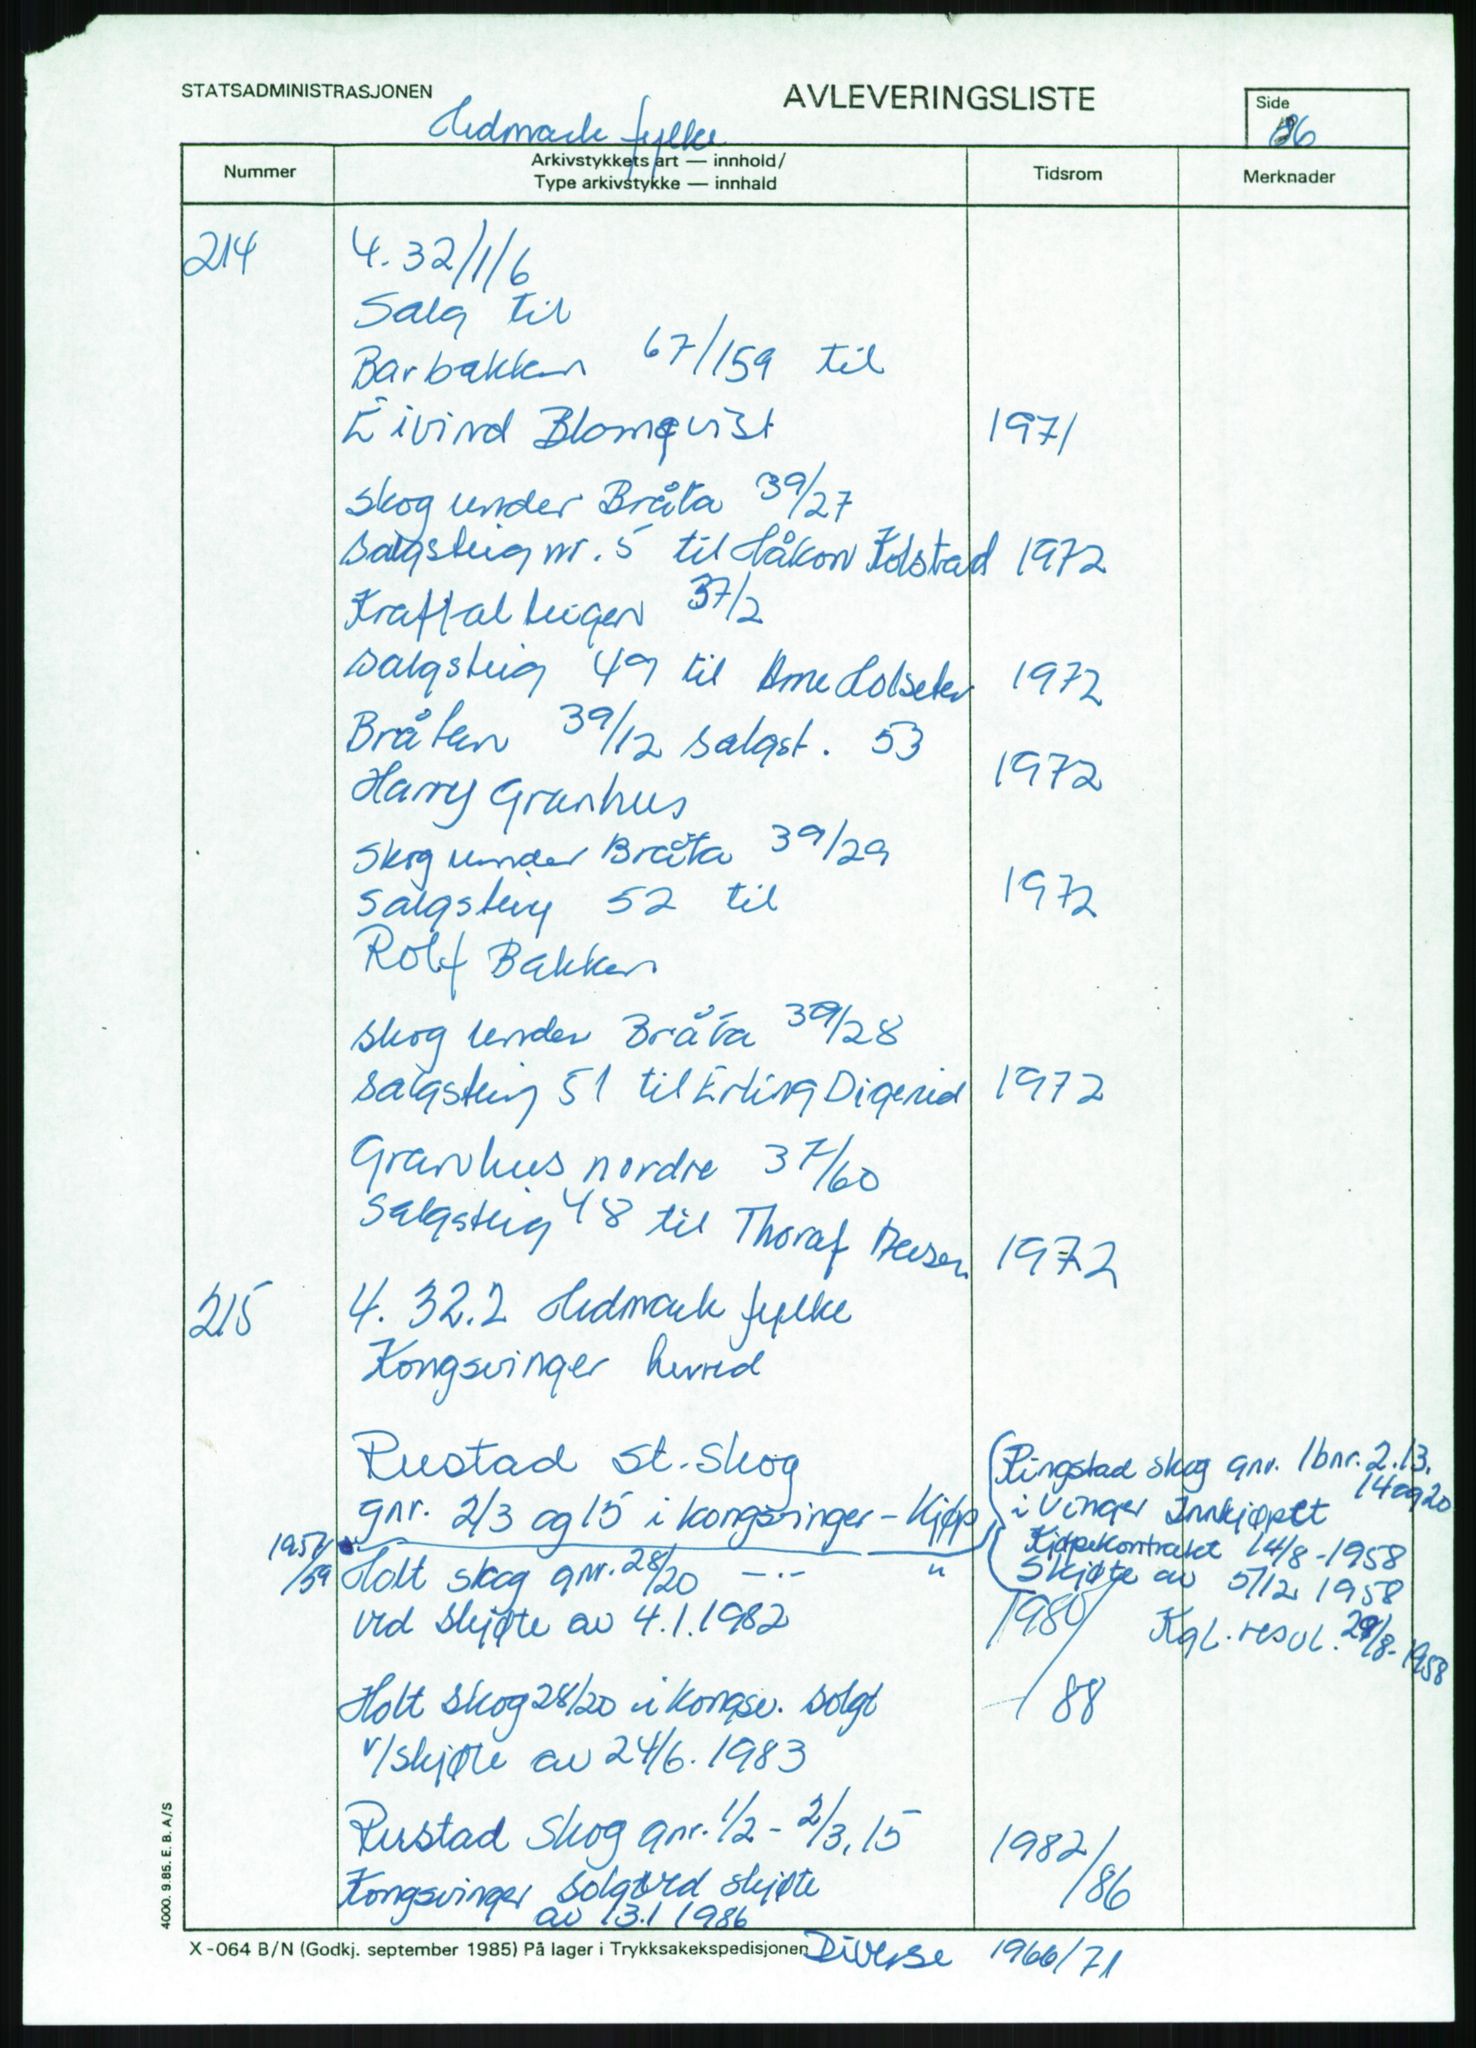 STATSADMINISTRASJONEN
AVLEVERINGSLISTE
Side
86
Hedmark fylke
Nummer
Arkivstykkets art — innhold/
Type arkivstykke — innhald
Tidsrom
Merknader
214
4. 32/1/6
Salg til
Barbakken 67/159 til
Eivind Blomqvist 1971
Skog under Bråta 39/27
Salgsteig nr. 5 til Håkon Kolstad 1972
37/2
Salgsteig 49 til Arne Holseter 1972
Bråten 39/12 salgst. 53
Harry Granhus 1972
Skog under Bråta 39/29
Salgsteig 52 til 1972
Rolf Bakken
Skog under Bråta 39/28
Salgsteig 51 til Erling Digerud 1972
Granhus nordre 37/60
Salgsteig 48 til 1972
215
4. 32.2 Hedmark fylke
Kongsvinger herred
Rustad st. skog
gnr. 2/3 og 15 i Kongsvinger - Kjøp
Ringstad skog gnr. 1 bnr. 2. 13.
14 og 20
i Vinger Innkjøpt
Kjøpekontrakt 14/8-1958
Skjøte av 5/12 1958
Kgl. resol. 29/8-1958
1957/
/59
Holt skog gnr. 28/20 -"- "
ved skjøte av 4.1.1982
1980/
Holt skog 28/20 i Kongsv. solgt
/88
v/skjøte av 24/6. 1983
Rustad Skog gnr. 1/2 - 2/3, 15
1982/
Kongsvinger solgt ved skjøte
/86
av 13.1 1986
4000. 9.85. E. B. A/S
X-064 B/N (Godkj. september 1985) På lager i Trykksakekspedisjonen
Diverse 1966/71